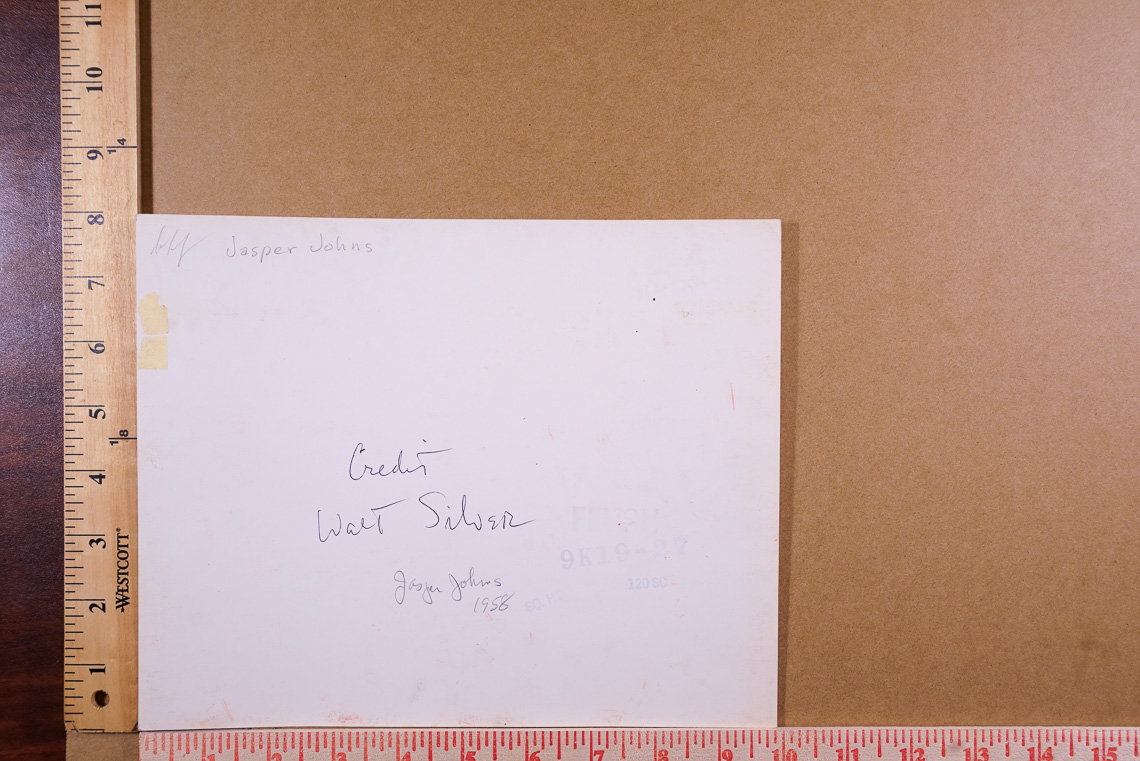 Jasper Johns
Credit
Walt Silver
Jasper Johns
1958
9K19-27
120SC
WESTCOTT
11
10
9
8
7
6
5
4
3
2
1
1/4
1/8
1 2 3 4 5 6 7 8 9 10 11 12 13 14 15